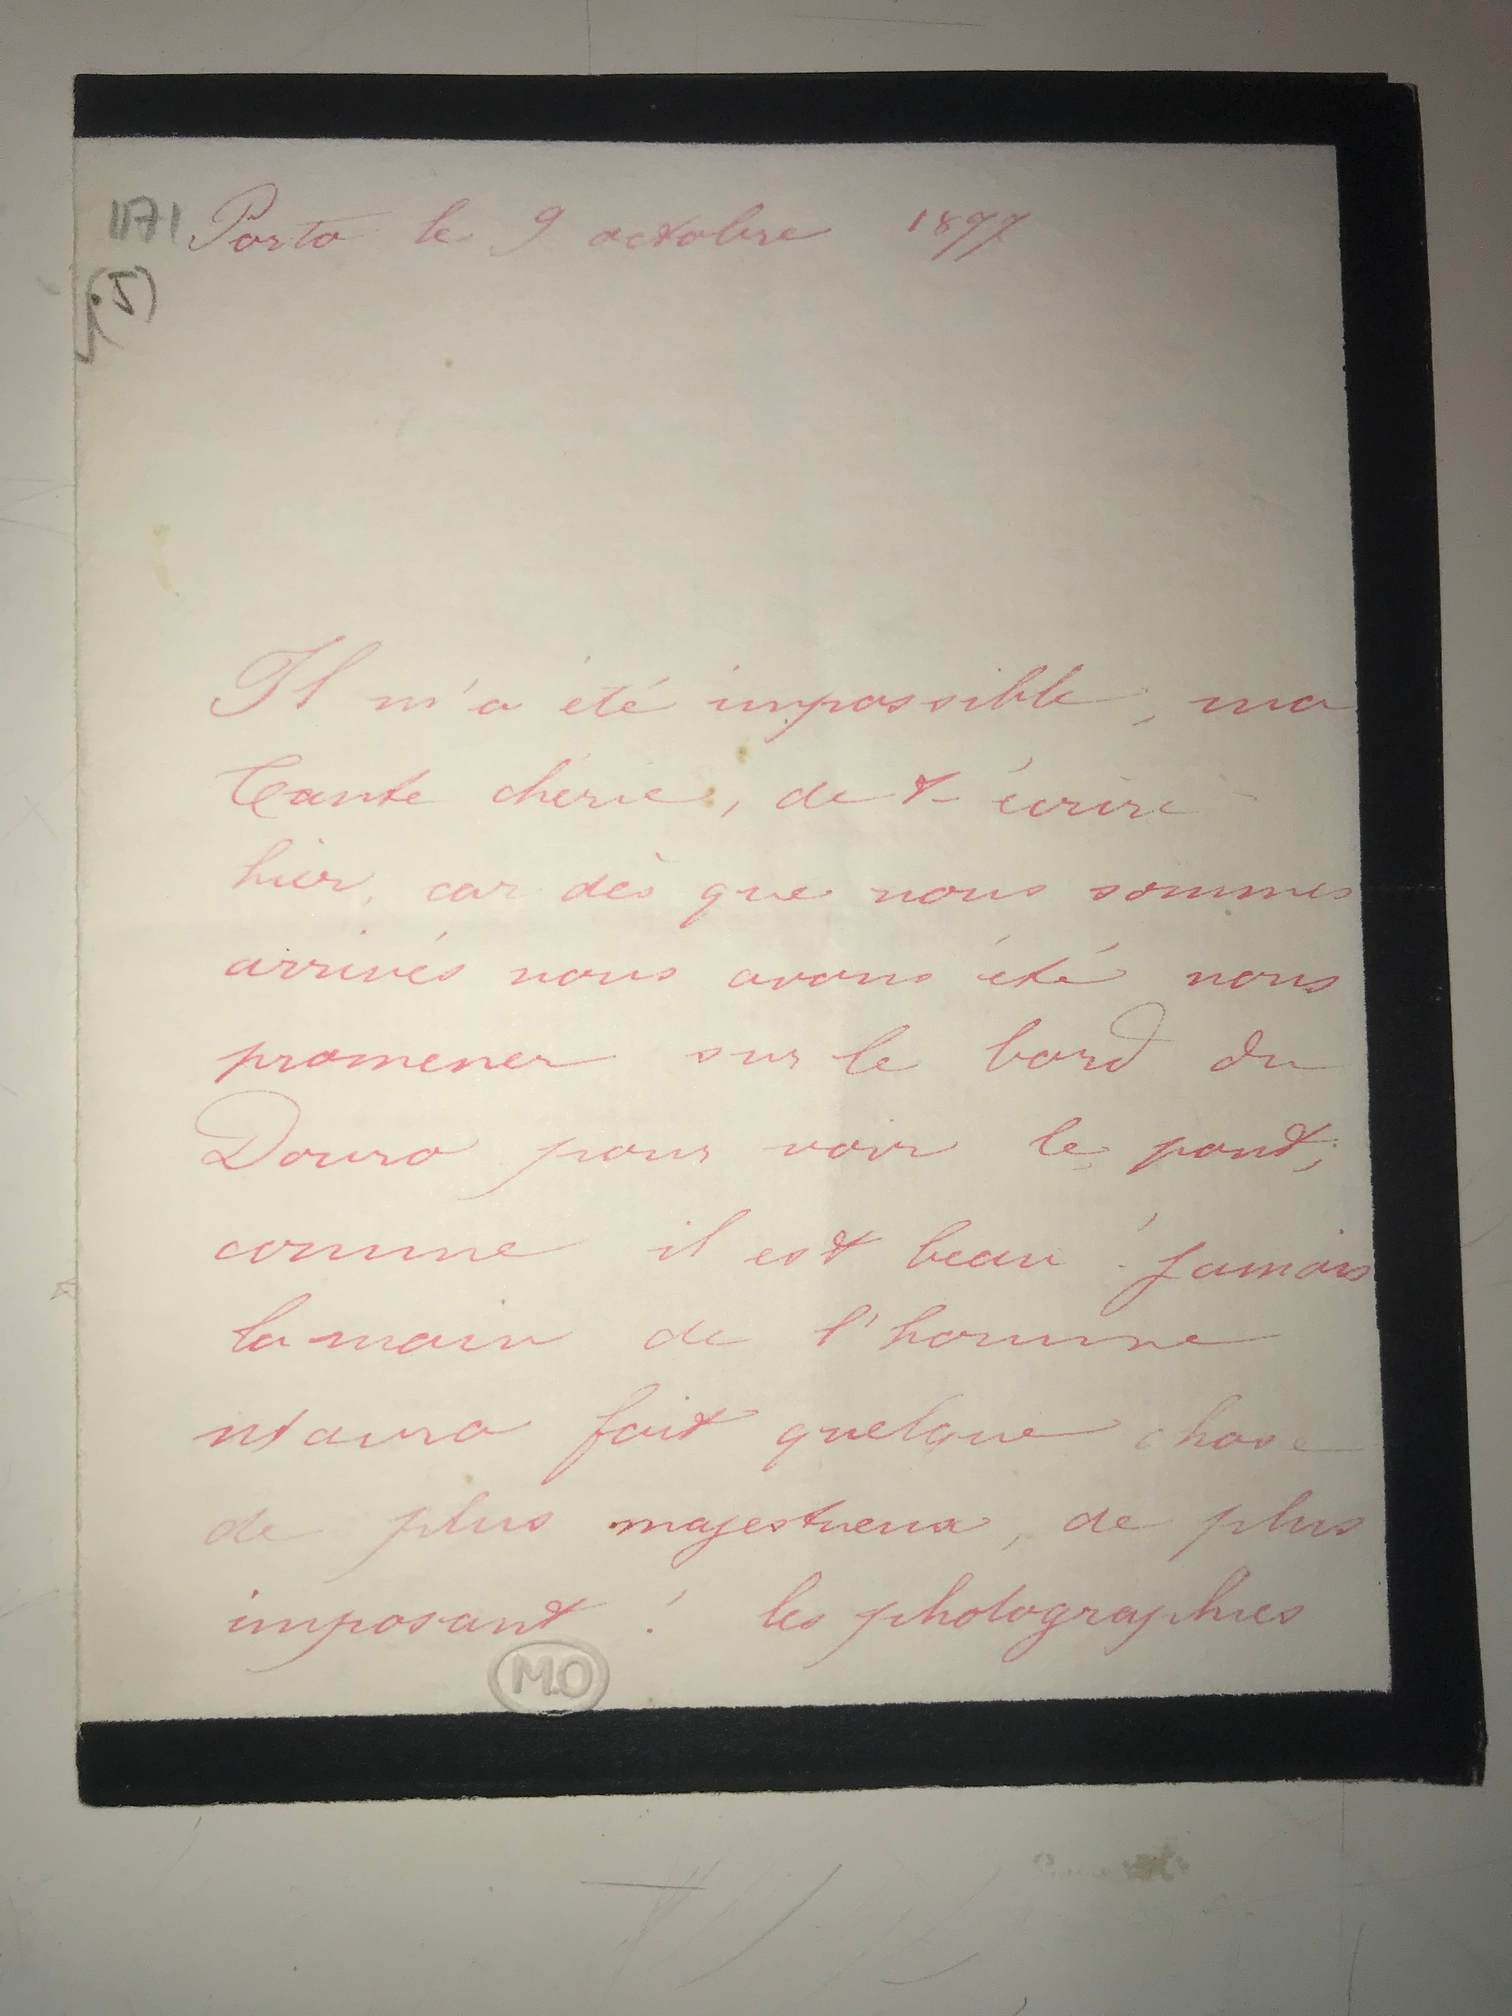 1171 Porto le 9 octobre 1877
(5)
Il m'a été impossible, ma
Tante chérie, de t'écrire
hier, car dès que nous sommes
arrivés nous avons été nous
promener sur le bord du
Douro pour voir le pont;
comme il est beau! jamais
la main de l'homme
n'aura fait quelque chose
de plus majestueux, de plus
imposant! les photographies
M.O